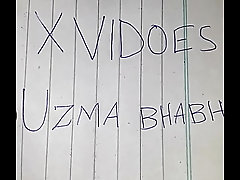 X VIDOES
UZMA BHABH